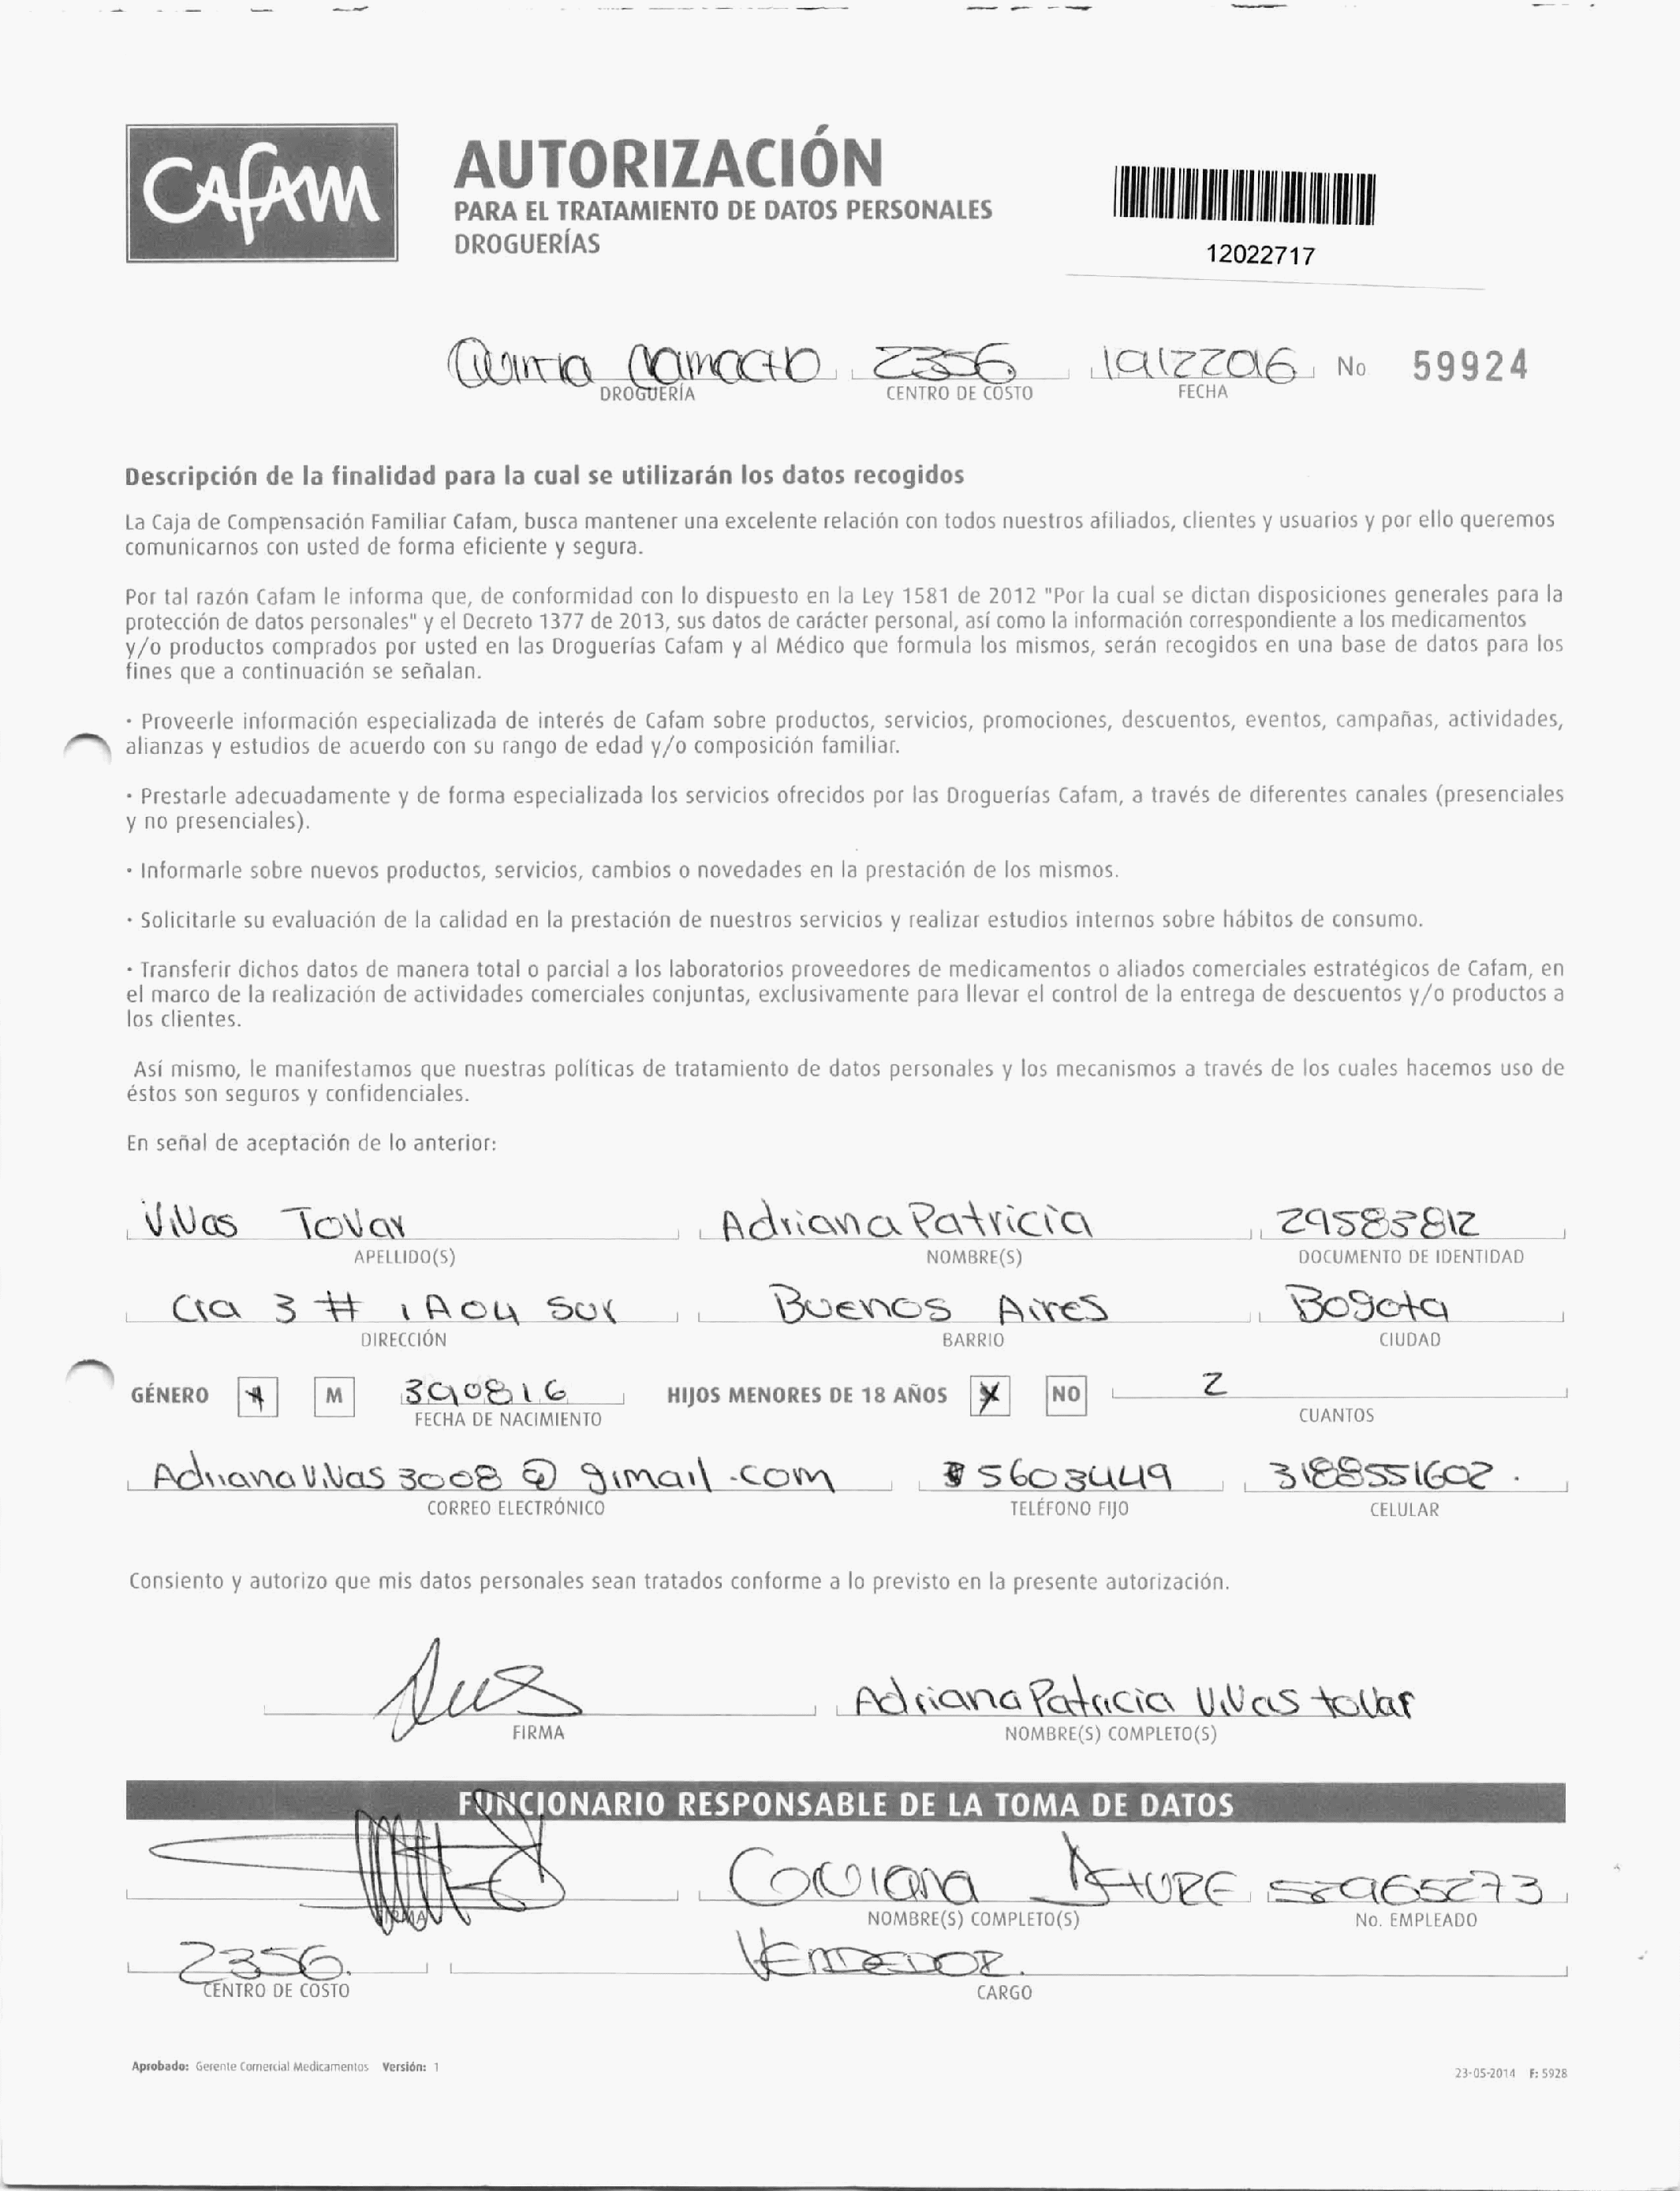 CAFAM
AUTORIZACIÓN
PARA EL TRATAMIENTO DE DATOS PERSONALES
DROGUERÍAS
12022717
Quinta Camacho 2356 19122016 No 59924
DROGUERÍA CENTRO DE COSTO FECHA
Descripción de la finalidad para la cual se utilizarán los datos recogidos
La Caja de Compensación Familiar Cafam, busca mantener una excelente relación con todos nuestros afiliados, clientes y usuarios y por ello queremos
comunicarnos con usted de forma eficiente y segura.
Por tal razón Cafam le informa que, de conformidad con lo dispuesto en la Ley 1581 de 2012 "Por la cual se dictan disposiciones generales para la
protección de datos personales" y el Decreto 1377 de 2013, sus datos de carácter personal, así como la información correspondiente a los medicamentos
y/o productos comprados por usted en las Droguerías Cafam y al Médico que formula los mismos, serán recogidos en una base de datos para los
fines que a continuación se señalan.
· Proveerle información especializada de interés de Cafam sobre productos, servicios, promociones, descuentos, eventos, campañas, actividades,
alianzas y estudios de acuerdo con su rango de edad y/o composición familiar.
· Prestarle adecuadamente y de forma especializada los servicios ofrecidos por las Droguerías Cafam, a través de diferentes canales (presenciales
y no presenciales).
· Informarle sobre nuevos productos, servicios, cambios o novedades en la prestación de los mismos.
· Solicitarle su evaluación de la calidad en la prestación de nuestros servicios y realizar estudios internos sobre hábitos de consumo.
· Transferir dichos datos de manera total o parcial a los laboratorios proveedores de medicamentos o aliados comerciales estratégicos de Cafam, en
el marco de la realización de actividades comerciales conjuntas, exclusivamente para llevar el control de la entrega de descuentos y/o productos a
los clientes.
Así mismo, le manifestamos que nuestras políticas de tratamiento de datos personales y los mecanismos a través de los cuales hacemos uso de
éstos son seguros y confidenciales.
En señal de aceptación de lo anterior:
Vivas Tovar Adriana Patricia 29583812
APELLIDO(S) NOMBRE(S) DOCUMENTO DE IDENTIDAD
Cra 3 # 1A04 sur Buenos Aires Bogota
DIRECCIÓN BARRIO CIUDAD
GÉNERO M 390816 HIJOS MENORES DE 18 AÑOS X NO 2
FECHA DE NACIMIENTO CUANTOS
AdrianaVivas3008@gimail.com 5603449 3188551602.
CORREO ELECTRÓNICO TELÉFONO FIJO CELULAR
Consiento y autorizo que mis datos personales sean tratados conforme a lo previsto en la presente autorización.
Adriana Patricia Vivas tovar
FIRMA NOMBRE(S) COMPLETO(S)
FUNCIONARIO RESPONSABLE DE LA TOMA DE DATOS
FIRMA NOMBRE(S) COMPLETO(S) No. EMPLEADO
2356. VENDEDOR.
CENTRO DE COSTO CARGO
Aprobado: Gerente Comercial Medicamentos Versión: 1
23-05-2014 F: 5928